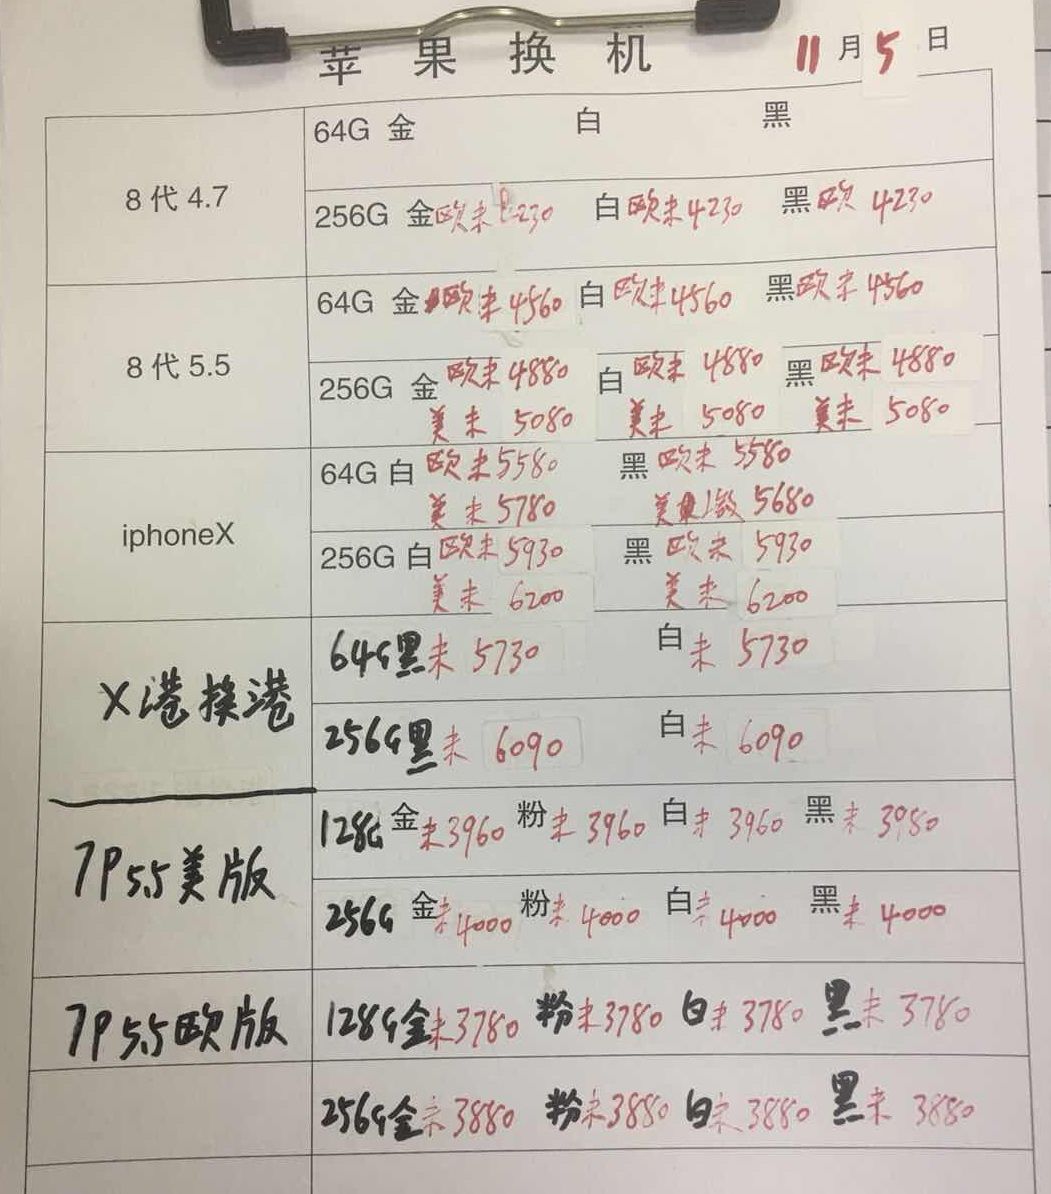 苹果换机 11月5日
8代4.7
64G 金 白 黑
256G 金欧未 230 白欧未4230 黑欧 4230
8代5.5
64G 金欧未4560 白欧未4560 黑欧未4560
256G 金欧未4880 白欧未4880 黑欧未4880
美未 5080 美未 5080 美未 5080
iphoneX
64G 白 欧未5580 黑 欧未 5580
美未5780 美 激 5680
256G 白欧未5930 黑 欧未 5930
美未 6200 美未 6200
X港换港
64G黑未 5730 白未 5730
256G黑未 6090 白未 6090
7P5.5美版
128G 金未3960 粉未3960 白未3960 黑未3980
256G 金未4000 粉未4000 白未4000 黑未4000
7P5.5欧版
128G金未3780 粉未3780 白未3780 黑未3780
256G金未3880 粉未3880 白未3880 黑未3880